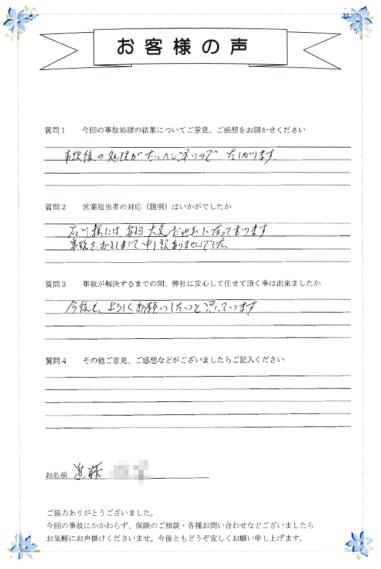 お客様の声
質問1 今回の事故処理の結果についてご意見、ご感想をお聞かせください
事故後の処理がたいへん早いので たすかります。
質問2 営業担当者の対応(説明)はいかがでしたか
石川様には、毎回 大変お世話になっております
事故をおこしまして申し訳ありませんでした。
質問3 事故が解決するまでの間、弊社に安心して任せて頂く事は出来ましたか
今後も、よろしくお願いしたいと思っています
質問4 その他ご意見、ご感想などがございましたらご記入ください
お名前 近藤
ご協力ありがとうございました。
今回の事故にかかわらず、保険のご相談・各種お問い合わせなどございましたら
お気軽にお声掛けくださいませ。今後ともどうぞ宜しくお願い申し上げます。